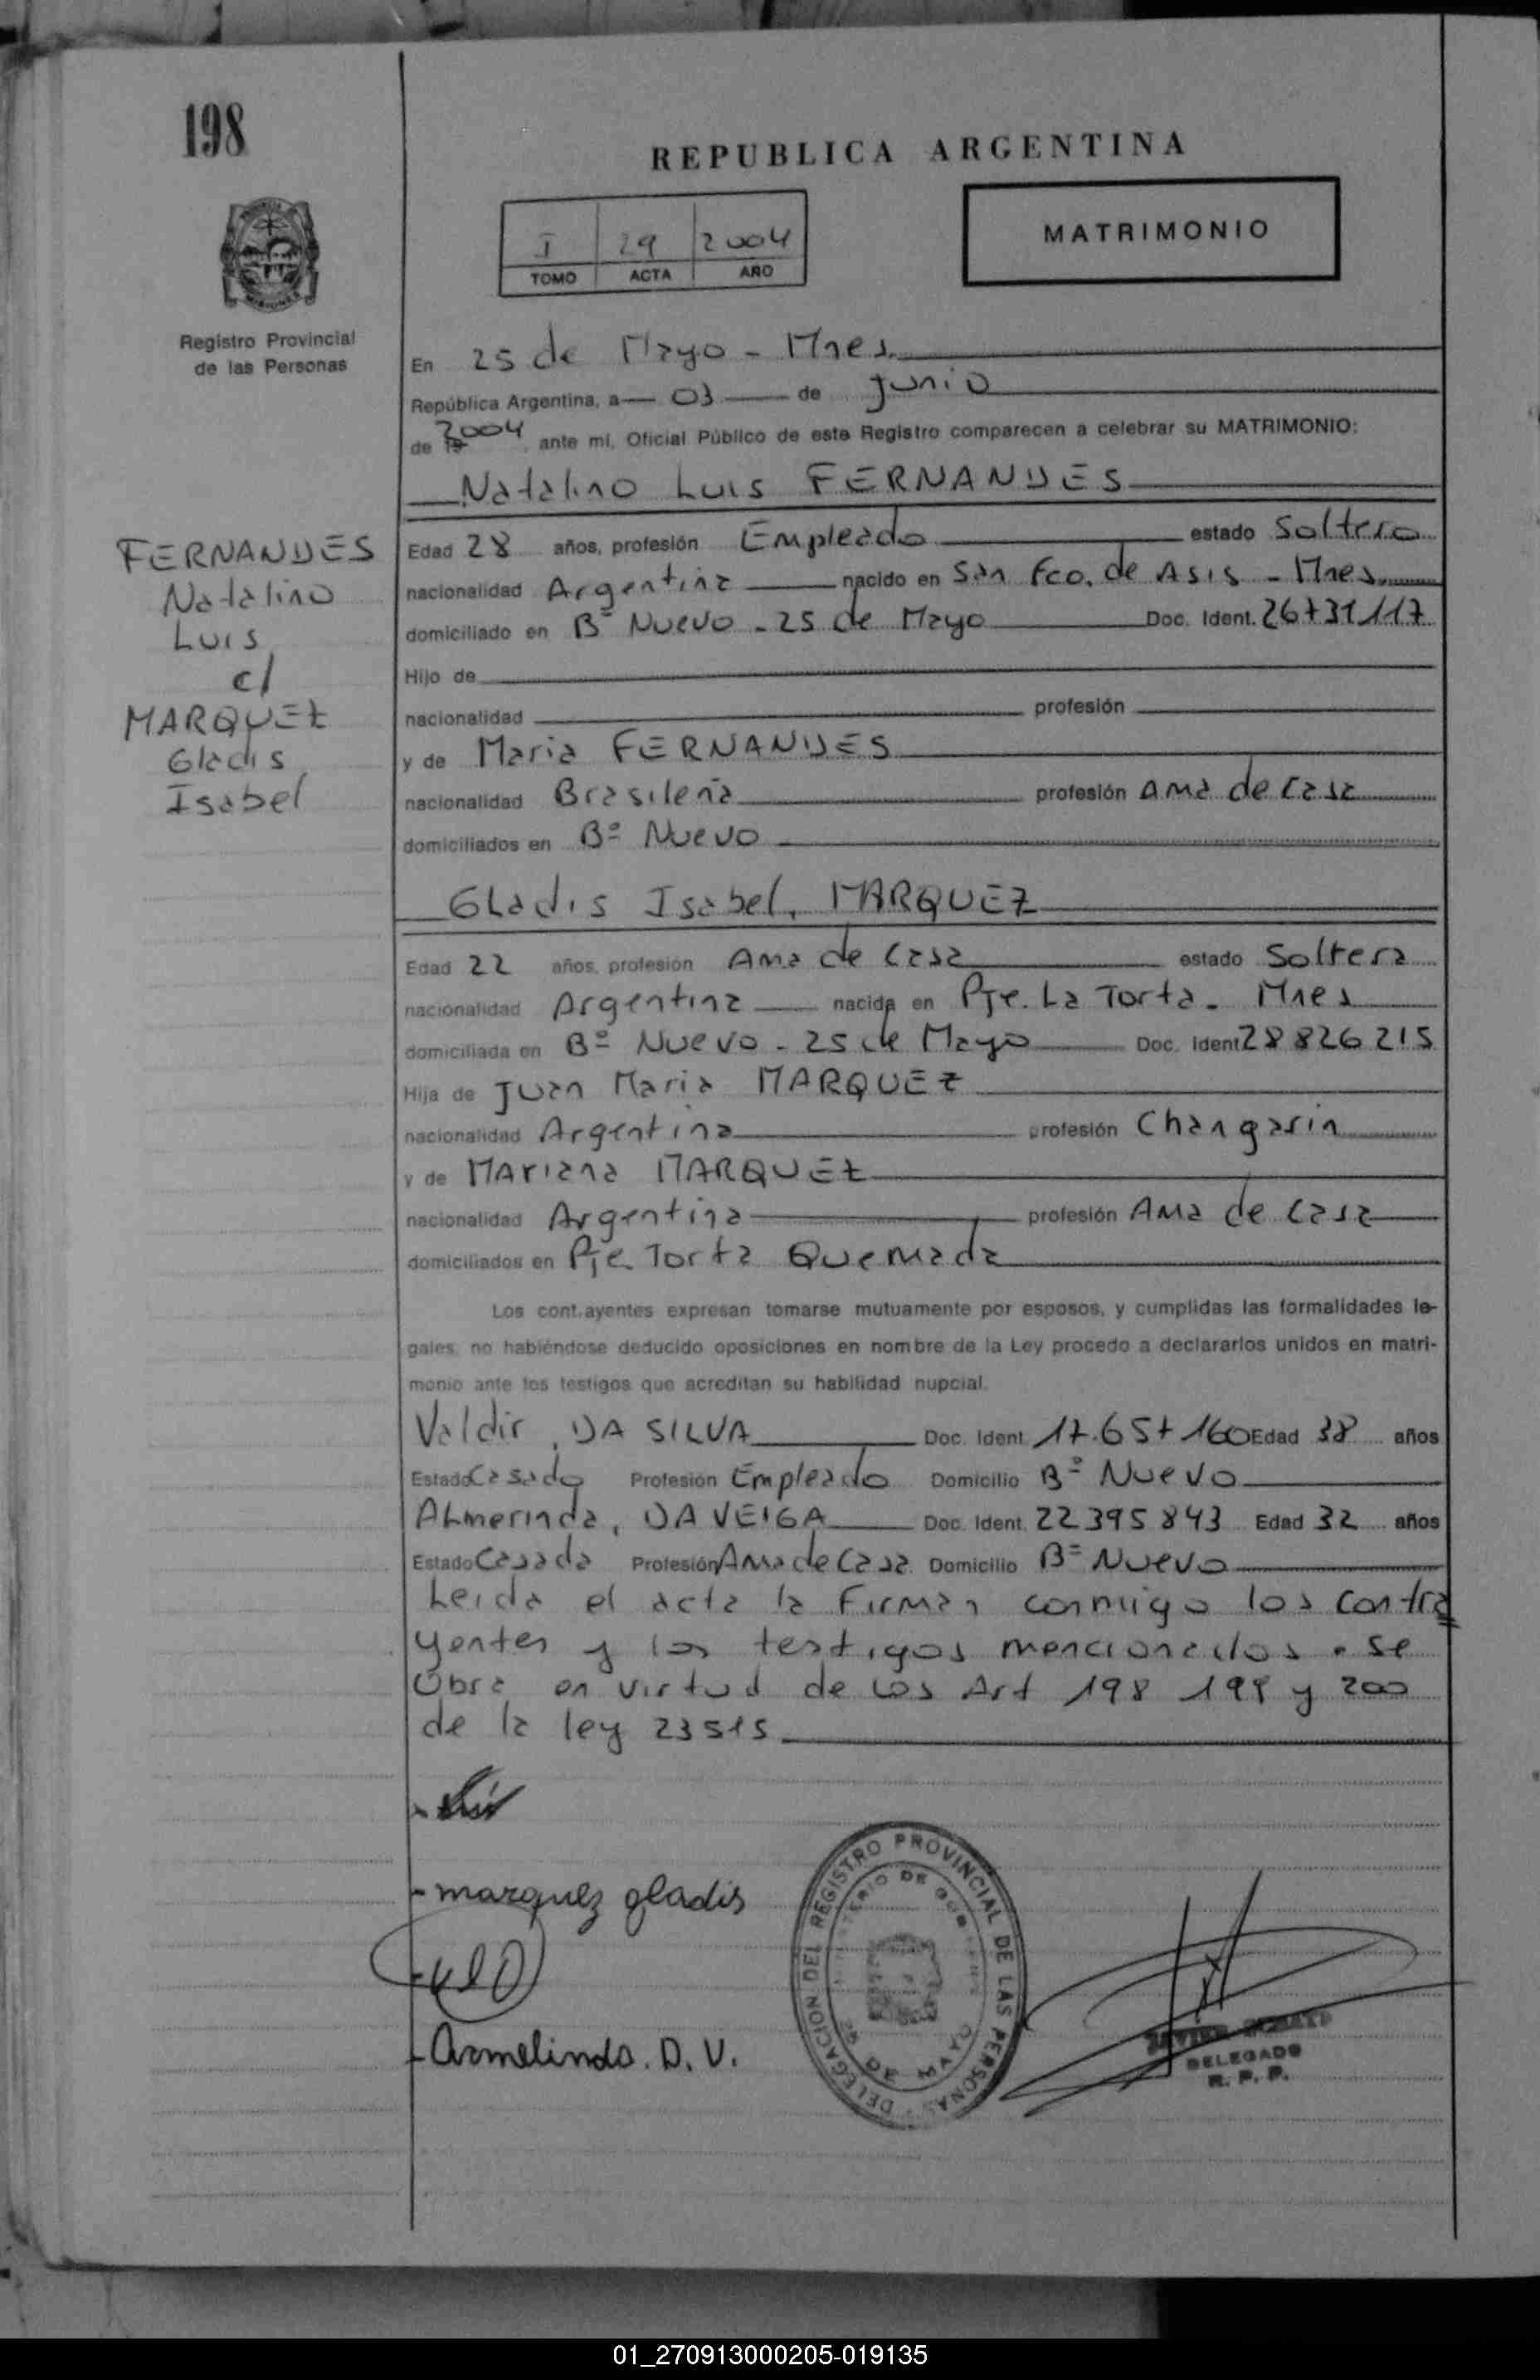 198
REPUBLICA ARGENTINA
MATRIMONIO
I 29 2004
TOMO ACTA AÑO
Registro Provincial
de las Personas
En 25 de Mayo - Mnes.
República Argentina, a 03 de Junio
de 19 2004, ante mí, Oficial Público de este Registro comparecen a celebrar su MATRIMONIO:
Natalino Luis FERNANDES
FERNANDES
Natalino
Luis
c/
MARQUEZ
Gladis
Isabel
Edad 28 años, profesión Empleado estado Soltero
nacionalidad Argentina nacido en San Fco. de Asis - Mnes.
domiciliado en Bº Nuevo - 25 de Mayo Doc. Ident. 26731117
Hijo de
nacionalidad profesión
y de Maria FERNANDES
nacionalidad Brasileña profesión Ama de Casa
domiciliados en Bº Nuevo
Gladis Isabel, MARQUEZ
Edad 22 años, profesión Ama de Casa estado Soltera
nacionalidad Argentina nacida en Pje. La Torta - Mnes
domiciliada en Bº Nuevo - 25 de Mayo Doc. Ident 28 826 215
Hija de Juan Maria MARQUEZ
nacionalidad Argentina profesión Changarin
y de Mariana MARQUEZ
nacionalidad Argentina profesión Ama de Casa
domiciliados en Pje Torta Quemada
Los contrayentes expresan tomarse mutuamente por esposos, y cumplidas las formalidades le-
gales, no habiéndose deducido oposiciones en nombre de la Ley procedo a declararlos unidos en matri-
monio ante los testigos que acreditan su habilidad nupcial.
Valdir, DA SILVA Doc. Ident. 17.657 160 Edad 38 años
Estado Casado Profesión Empleado Domicilio Bº Nuevo
Almerinda, DA VEIGA Doc. Ident. 22 395 843 Edad 32 años
Estado Casada Profesión Ama de Casa Domicilio Bº Nuevo
Leida el acta la Firman conmigo los Contra
yentes y los testigos mencionados. Se
Obra en virtud de los Art 198 199 y 200
de la ley 23515
- marquez gladis
- Armelindo. D. V.
DELEGACION DEL REGISTRO PROVINCIAL DE LAS PERSONAS
MINISTERIO DE GOBIERNO
25 DE MAYO
DELEGADO
R. P. P.
01_270913000205-019135